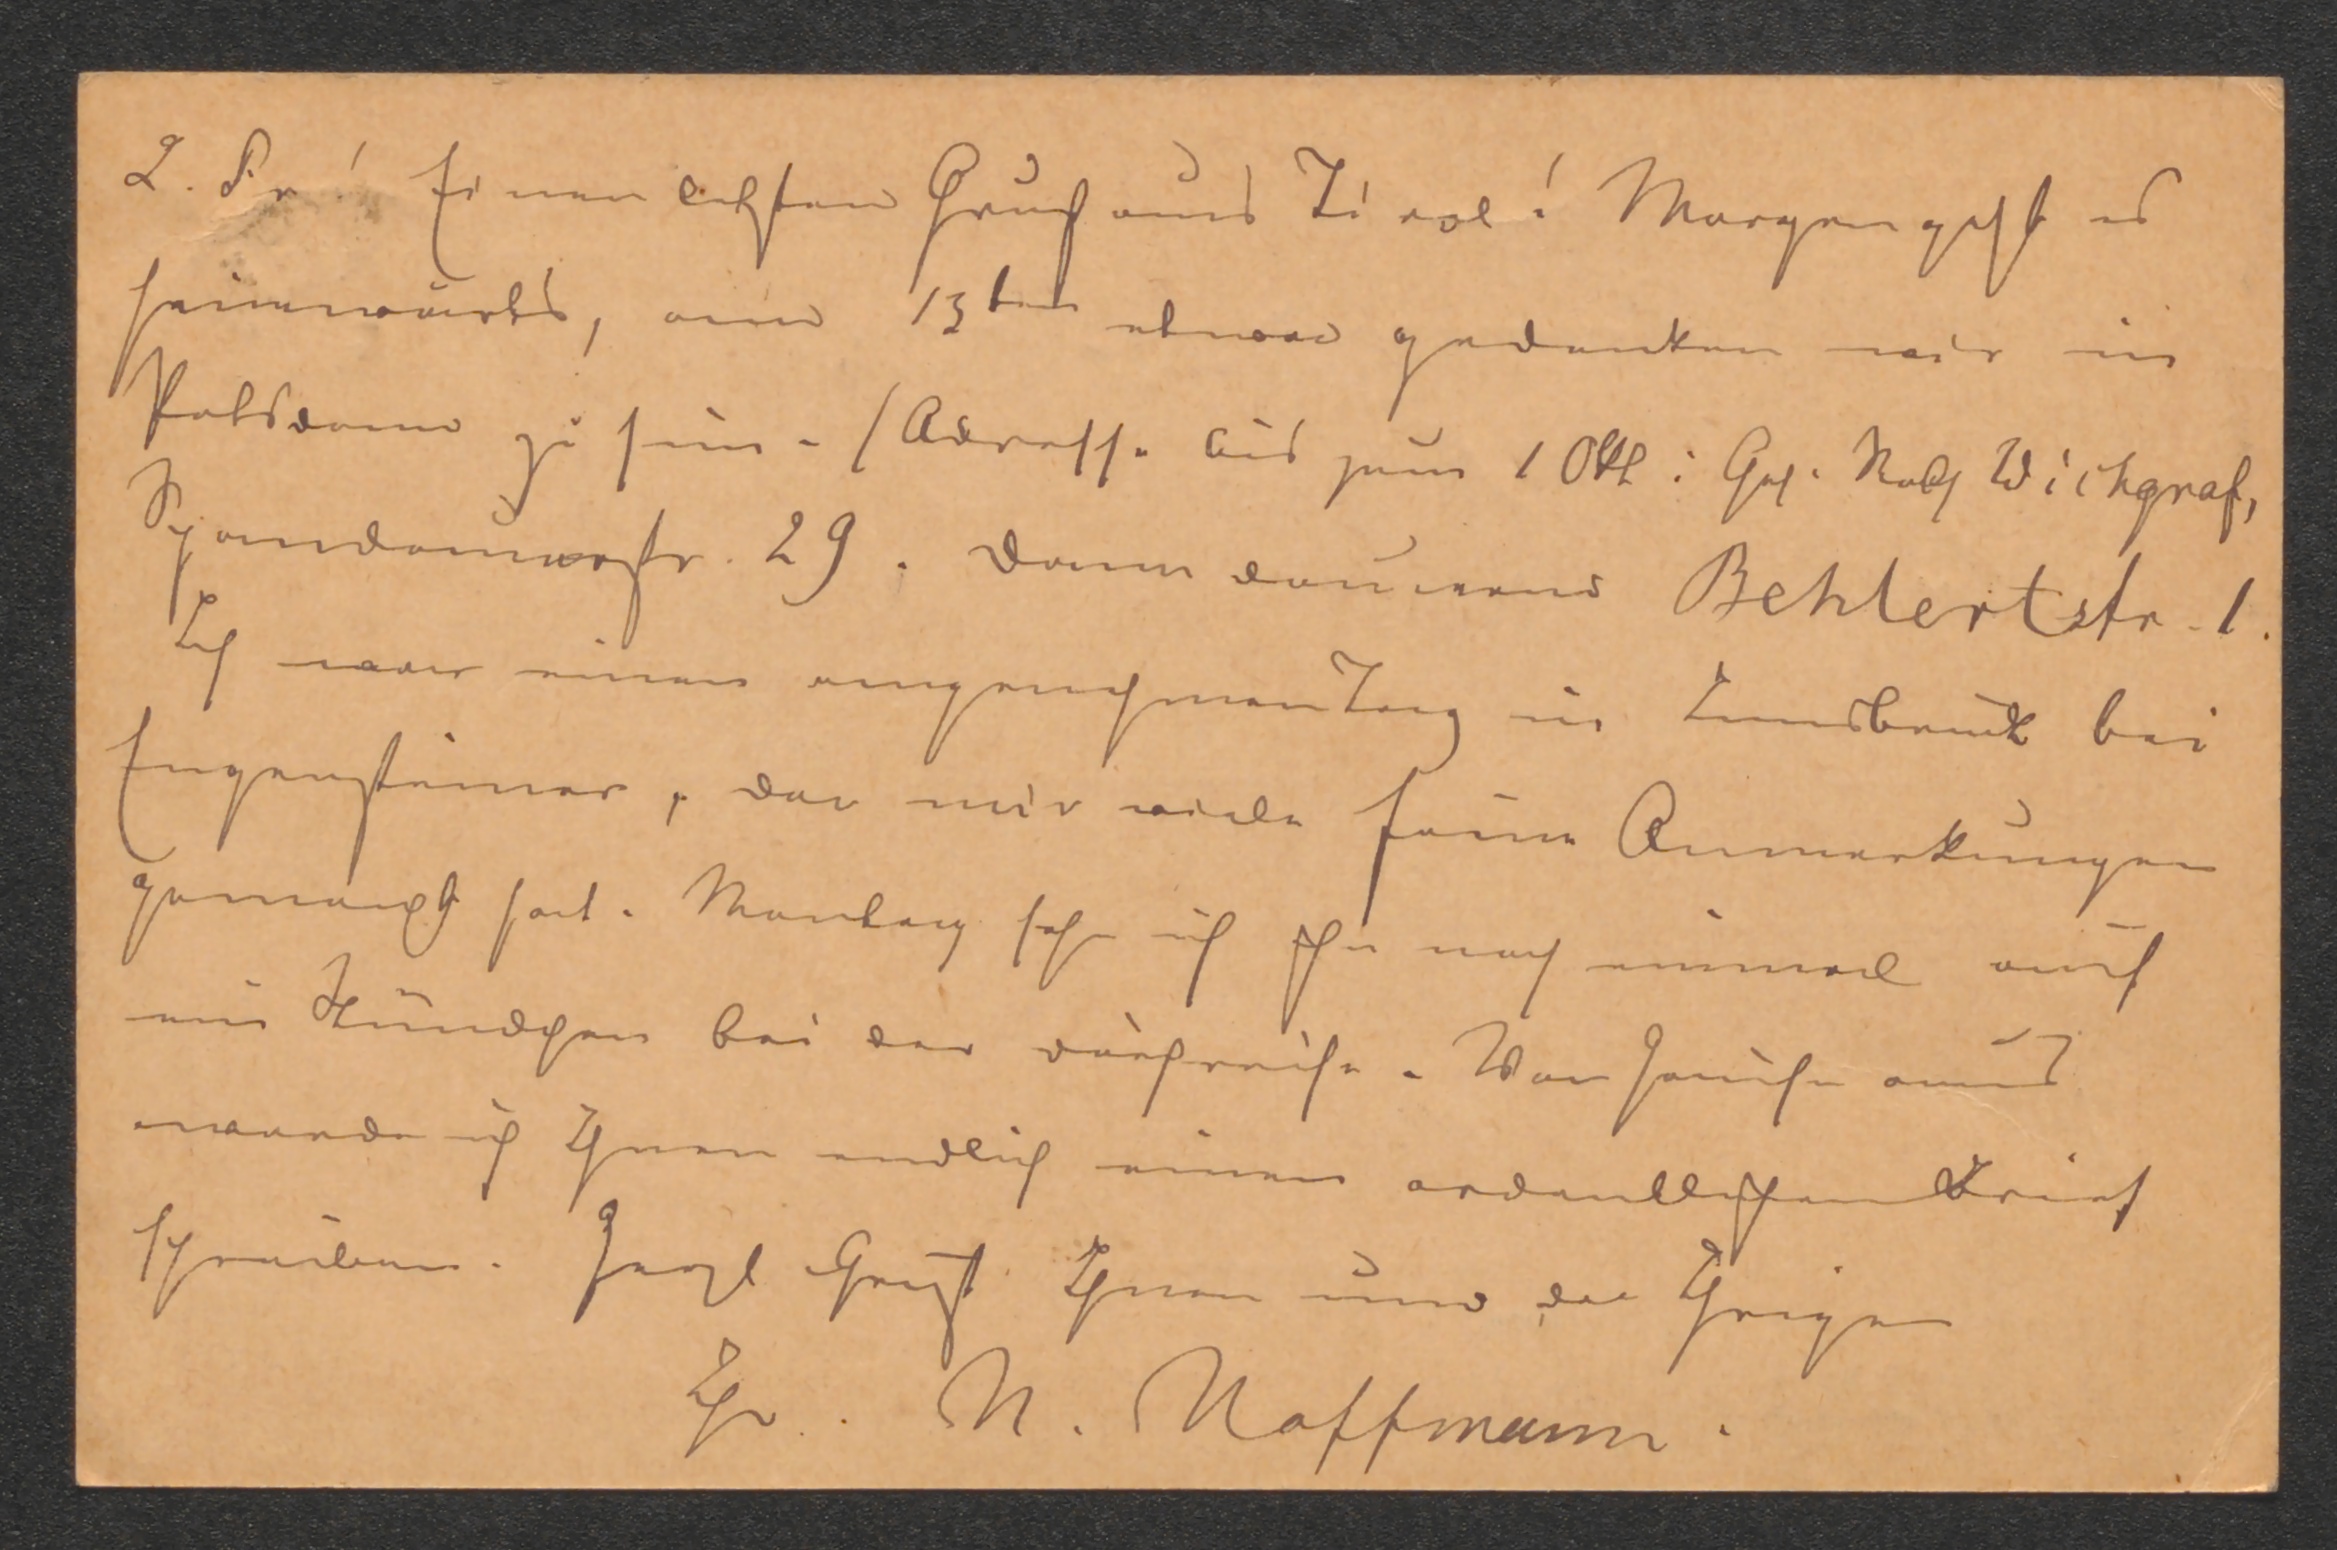 L. Fr! Einen letzten Gruß aus Tirol! Morgen geht es
heimwärts, am 13ten etwa gedenken wir in
Potsdam zu sein. / Adresse bis zum 1 Okt: Geh. Rath Wichgraf,
Spandauerstr. 29. Dann dauernd Behlertstr. 1.
Ich war einen angenehmen Tag in Innsbruck bei
Engensteiner, der mir viele feine Anmerkungen
gemacht hat. Montag sehe ich ihn noch einmal auf
ein Stündchen bei der Durchreise. Von Hause aus
werde ich Ihnen endlich einen ordentlichen Brief
schreiben. Herzl Grüße Ihnen und den Ihrigen
Ihr. H. Hoffmann.